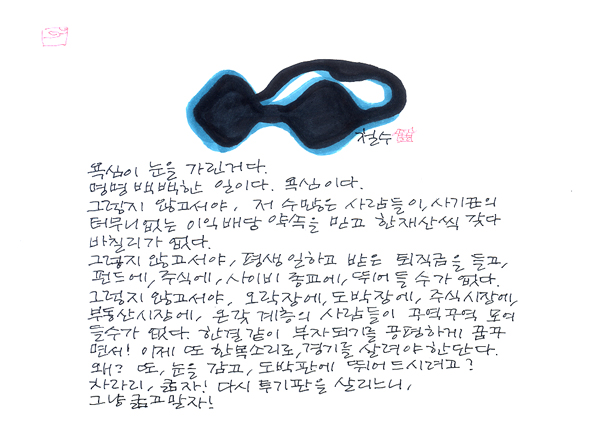 철수
욕심이 눈을 가린거다.
명명백백한 일이다. 욕심이다.
그렇지 않고서야, 저 수많은 사람들이, 사기꾼의
터무니없는 이익배당 약속을 믿고 한재산씩 갖다
바칠리가 없다.
그렇지 않고서야, 평생 일하고 받은 퇴직금을 들고,
펀드에, 주식에, 사이비 종교에, 뛰어들 수가 없다.
그렇지 않고서야, 오락장에, 도박장에, 주식시장에,
부동산시장에, 온갖 계층의 사람들이 꾸역꾸역 모여
들수가 없다. 한결같이 부자되기를 공평하게 꿈꾸
면서! 이제 또 한목소리로, 경기를 살려야한단다.
왜? 또, 눈을 감고, 도박판에 뛰어드시려고?
차라리, 굶자! 다시 투기판을 살리느니,
그냥 굶고말자!